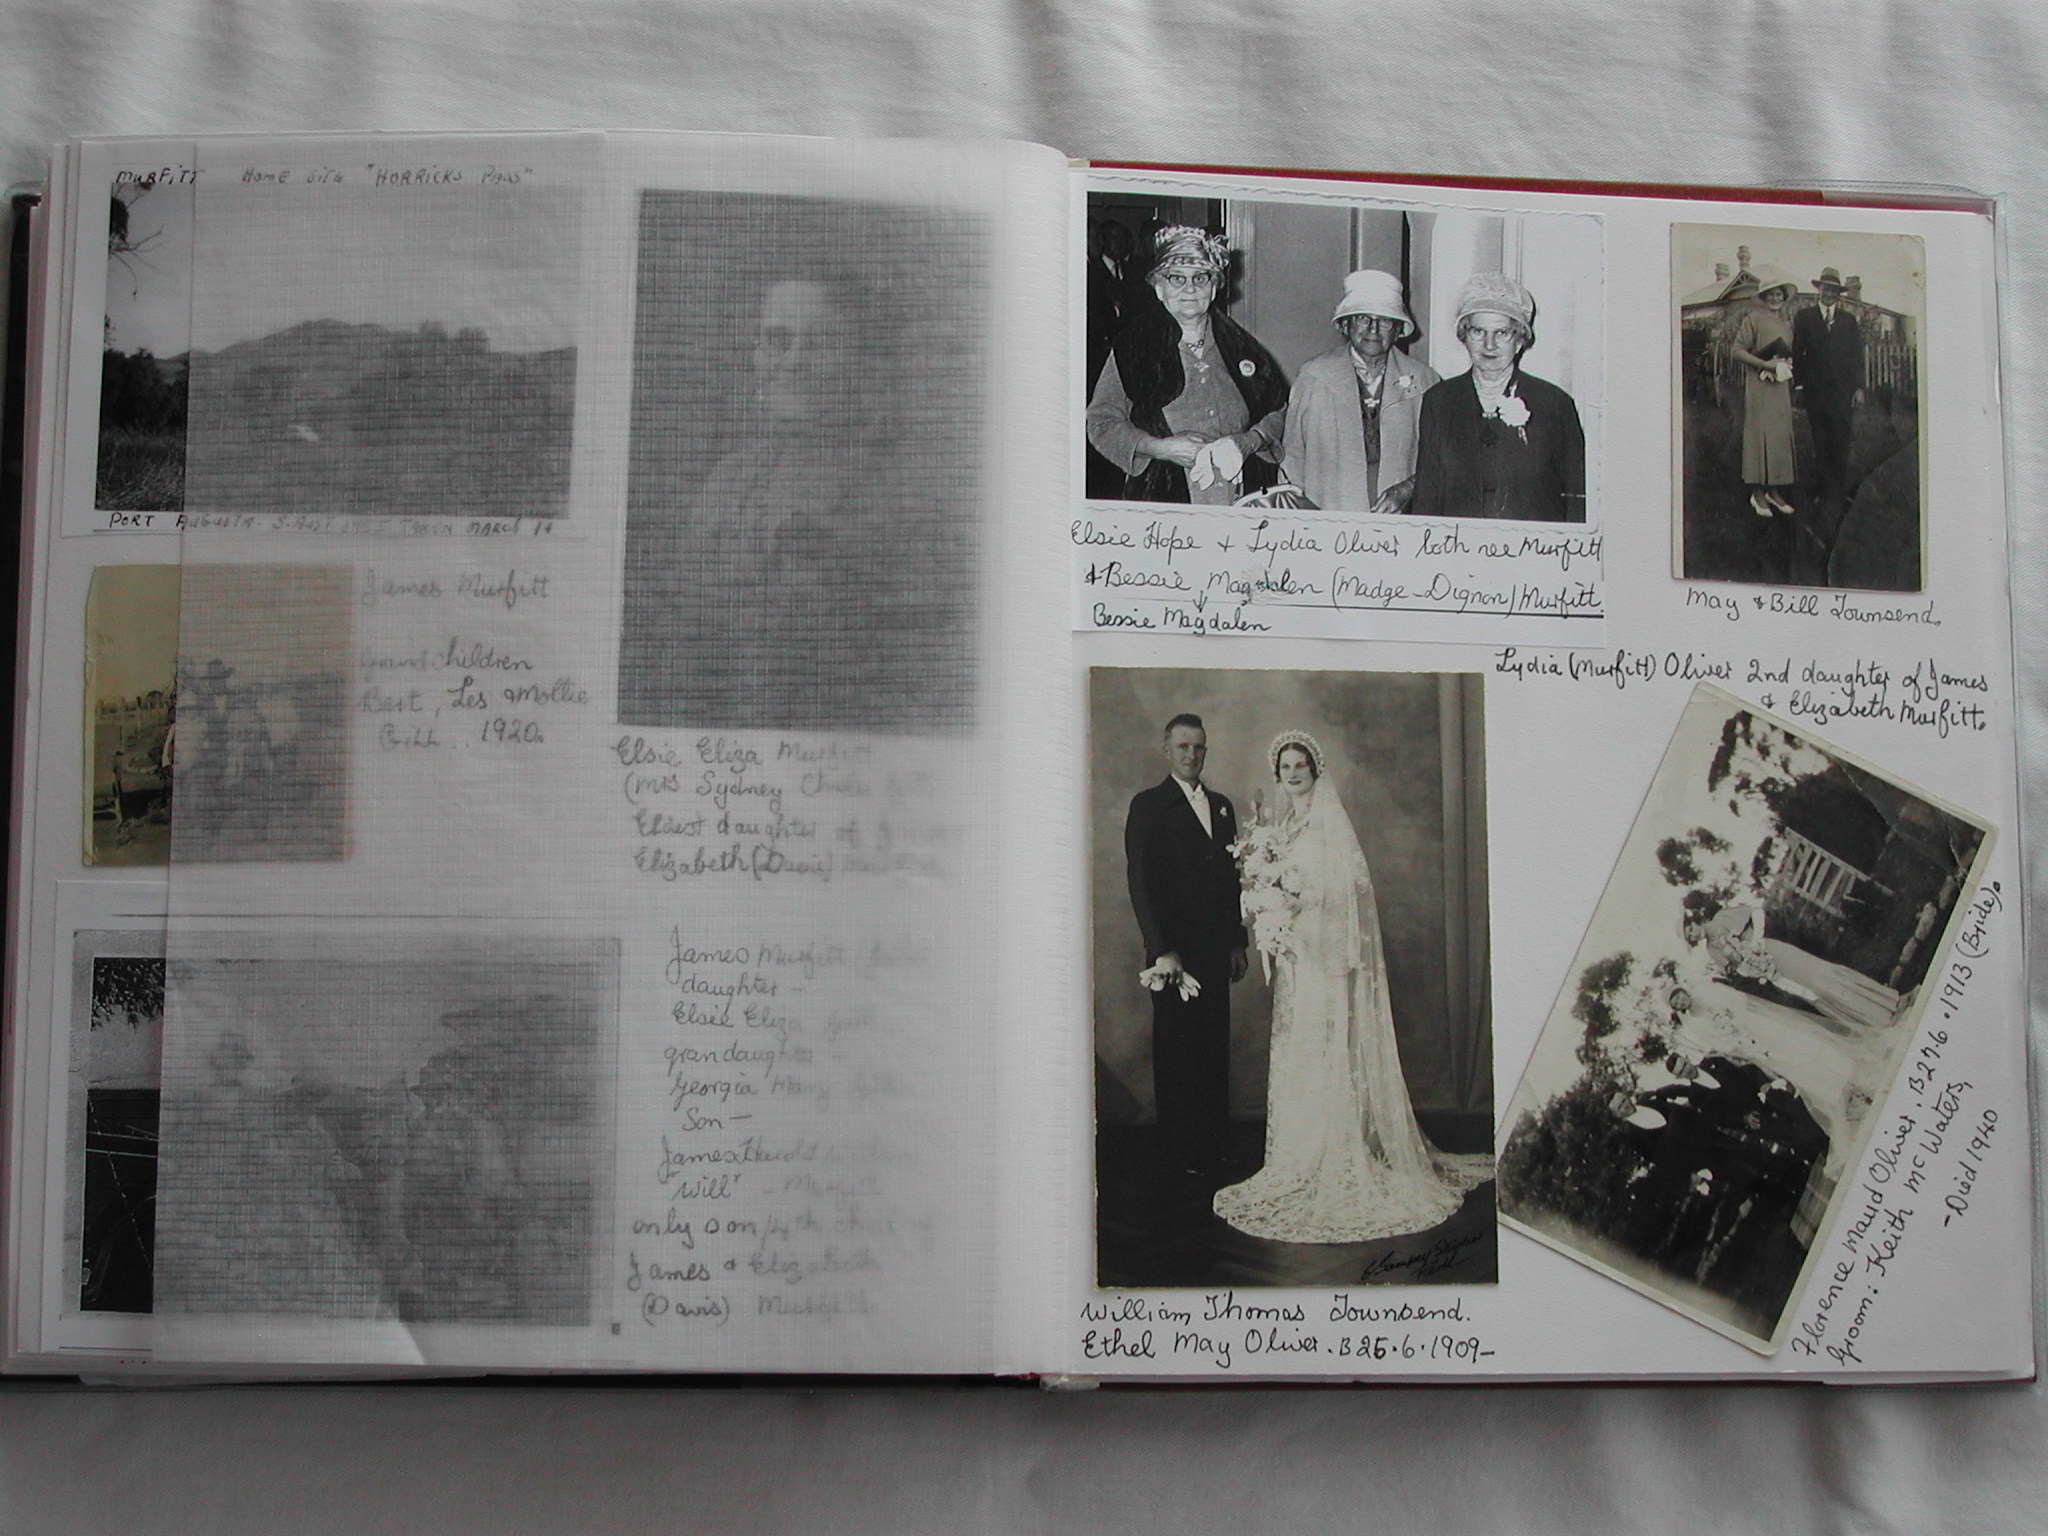 MURFITT HOME SITE "HORRICKS PASS"
PORT AUGUSTA. S. AUST TAKEN MARCH
James Murfitt
Grandchildren
Bert, Les & Mollie
Gill 1920.
Elsie Eliza Murfitt
(Mrs Sydney
Eldest daughter of
Elizabeth (Davis)
James Murfitt
daughter -
Elsie Eliza
grandaughter -
Georgia Mary
Son -
James
"Will" -
only son/4th child of
James & Elizabeth
(Davis) Murfitt
Elsie Hope & Lydia Oliver both nee Murfitt
& Bessie Magdalen (Madge-Dignon) Murfitt.
Bessie Magdalen
May & Bill Townsend.
Lydia (Murfitt) Oliver 2nd daughter of James
& Elizabeth Murfitt.
William Thomas Townsend.
Ethel May Oliver. B 25.6.1909-
Florence Maud Oliver. B 27.6.1913 (Bride).
Groom: Keith McWaters,
-Died 1940